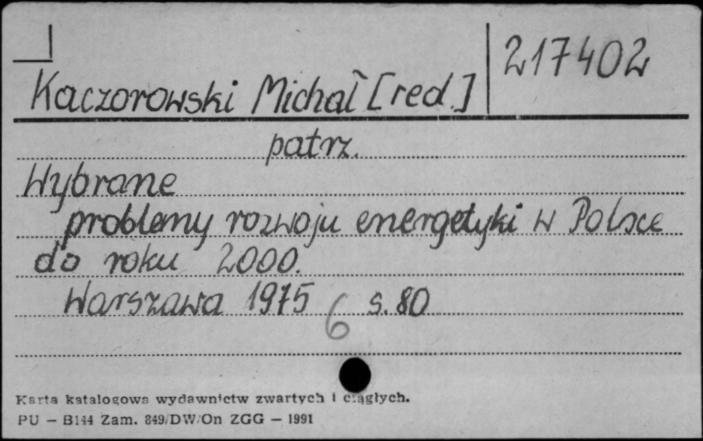 217402
Kaczorowski Michał [red.]
patrz.
Wybrane
problemy rozwoju energetyki w Polsce
do roku 2000.
Warszawa 1975 s. 80
6
Karta katalogowa wydawnictw zwartych i ciągłych.
PU – B144 Zam. 849/DW/On ZGG – 1991